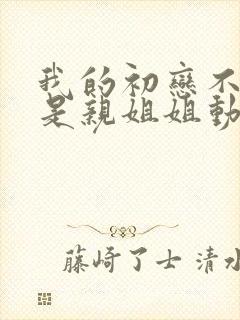 我的初戀不
是親姐姐動
藤崎了士 清水